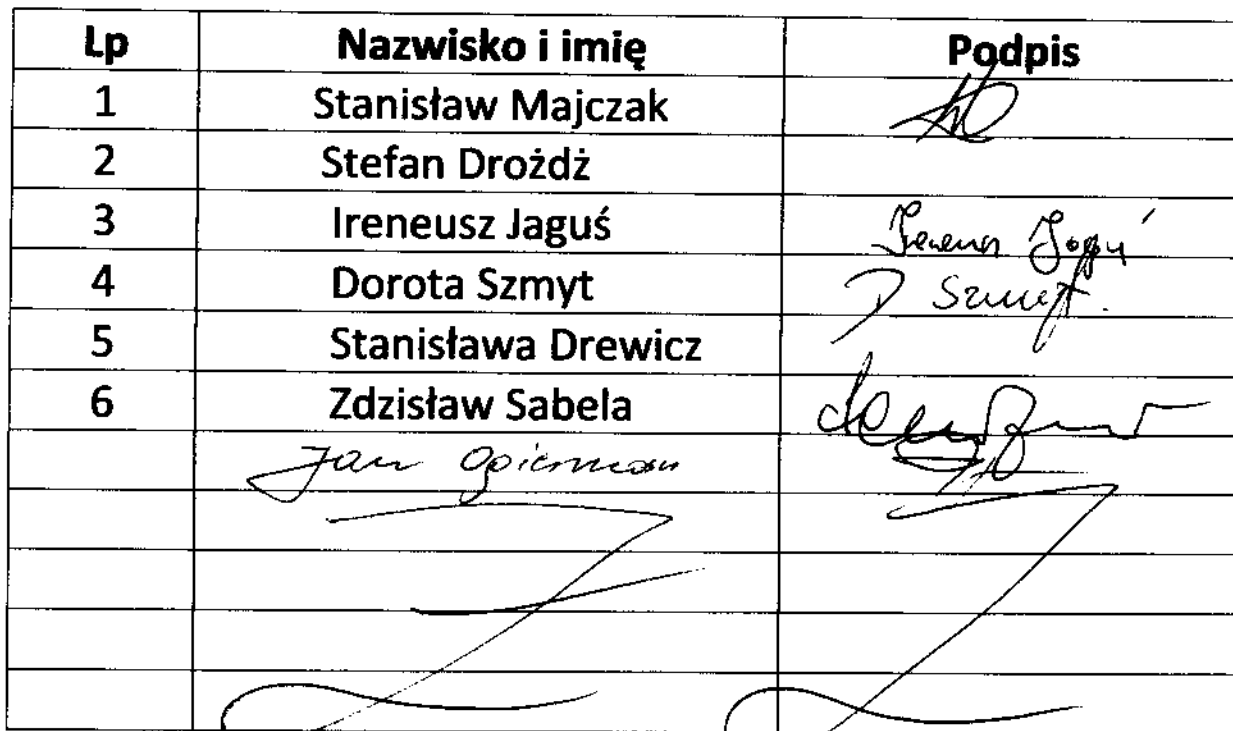 Lp Nazwisko i imię Podpis
1 Stanisław Majczak
2 Stefan Drożdż
3 Ireneusz Jaguś
4 Dorota Szmyt D Szmyt.
5 Stanisława Drewicz
6 Zdzisław Sabela
Jan